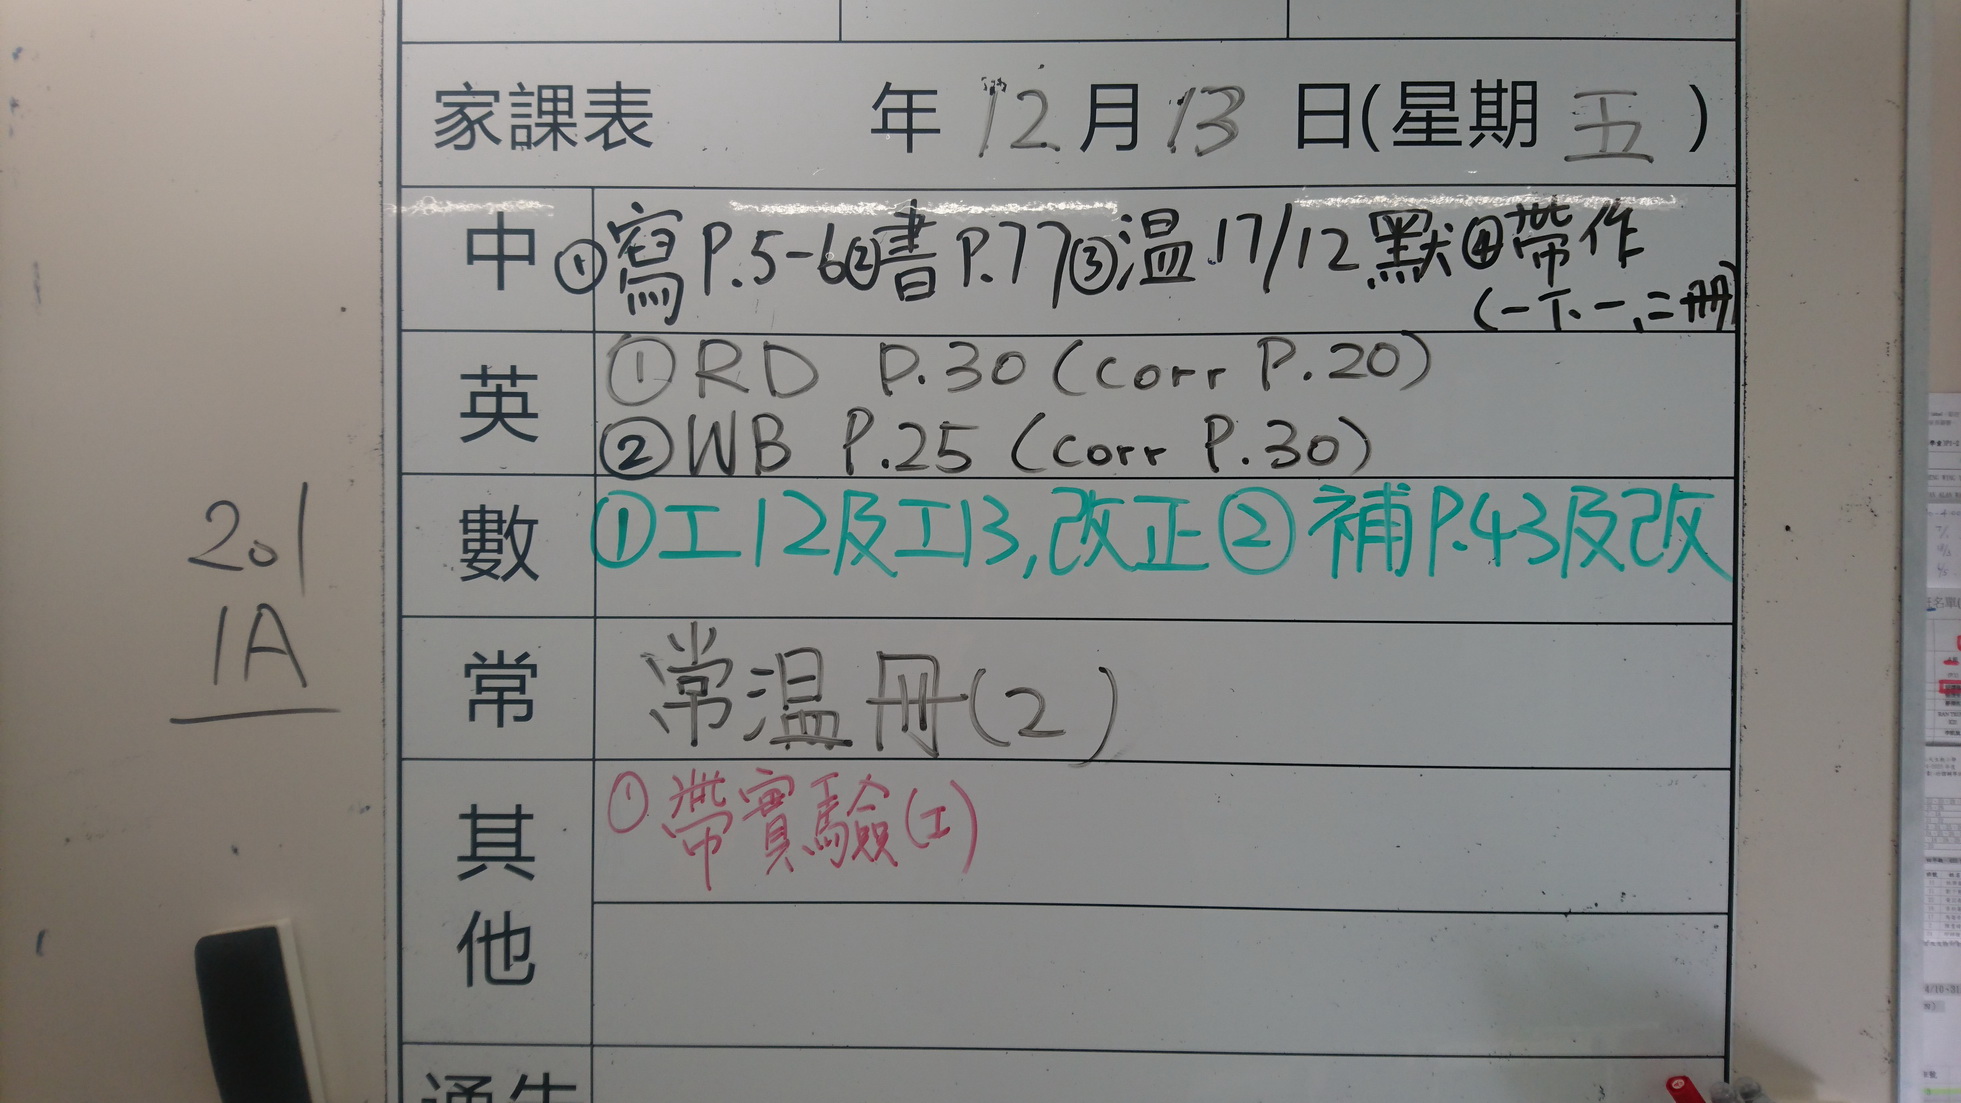 家課表 年 12 月 13 日(星期 五 )
中 ①寫 P.5-6②書 P.77③溫 17/12 默④帶作
(一下.一,二冊)
英 ①RD P.30 (corr P.20)
②WB P.25 (corr P.30)
數 ①工12及工13,改正②補P.43及改
201
1A
常 常溫冊(2)
其他 ①帶實驗(工)
通告